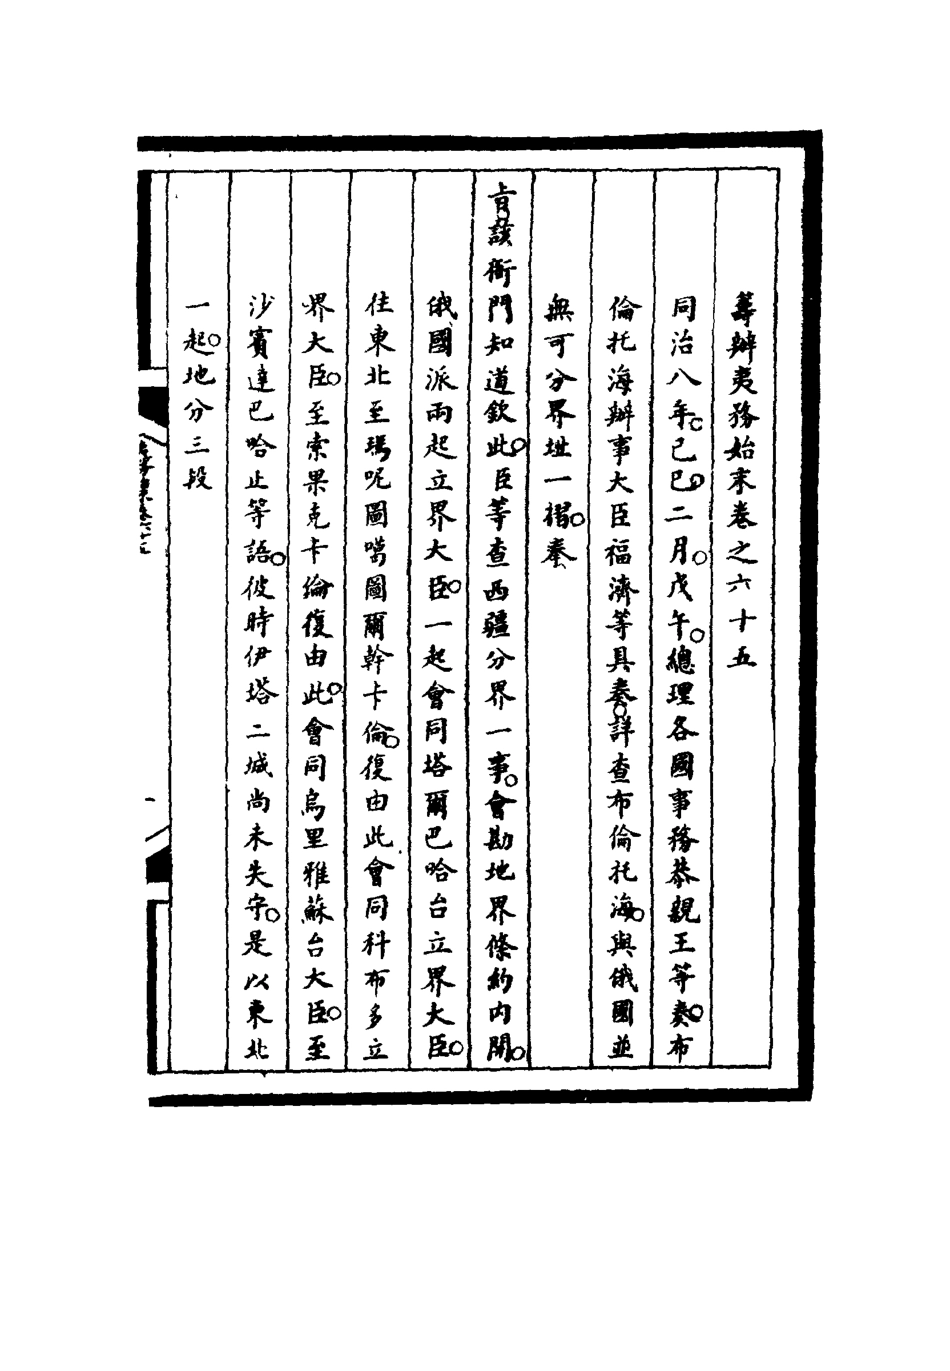 籌辦夷務始末卷之六十五
同治八年。己巳。二月。戊午。總理各國事務恭親王等奏。布
倫托海辦事大臣福濟等具奏。詳查布倫托海。與俄國並
無可分界址一摺。奉
旨。該衙門知道。欽此。臣等查西疆分界一事。會勘地界條約內開。
俄國派兩起立界大臣。一起會同塔爾巴哈台立界大臣。
往東北至瑪呢圖噶圖爾幹卡倫。復由此會同科布多立
界大臣。至索果克卡倫。復由此。會同烏里雅蘇台大臣。至
沙賓達巴哈止等語。彼時伊塔二城尚未失守。是以東北
一起。地分三段
一